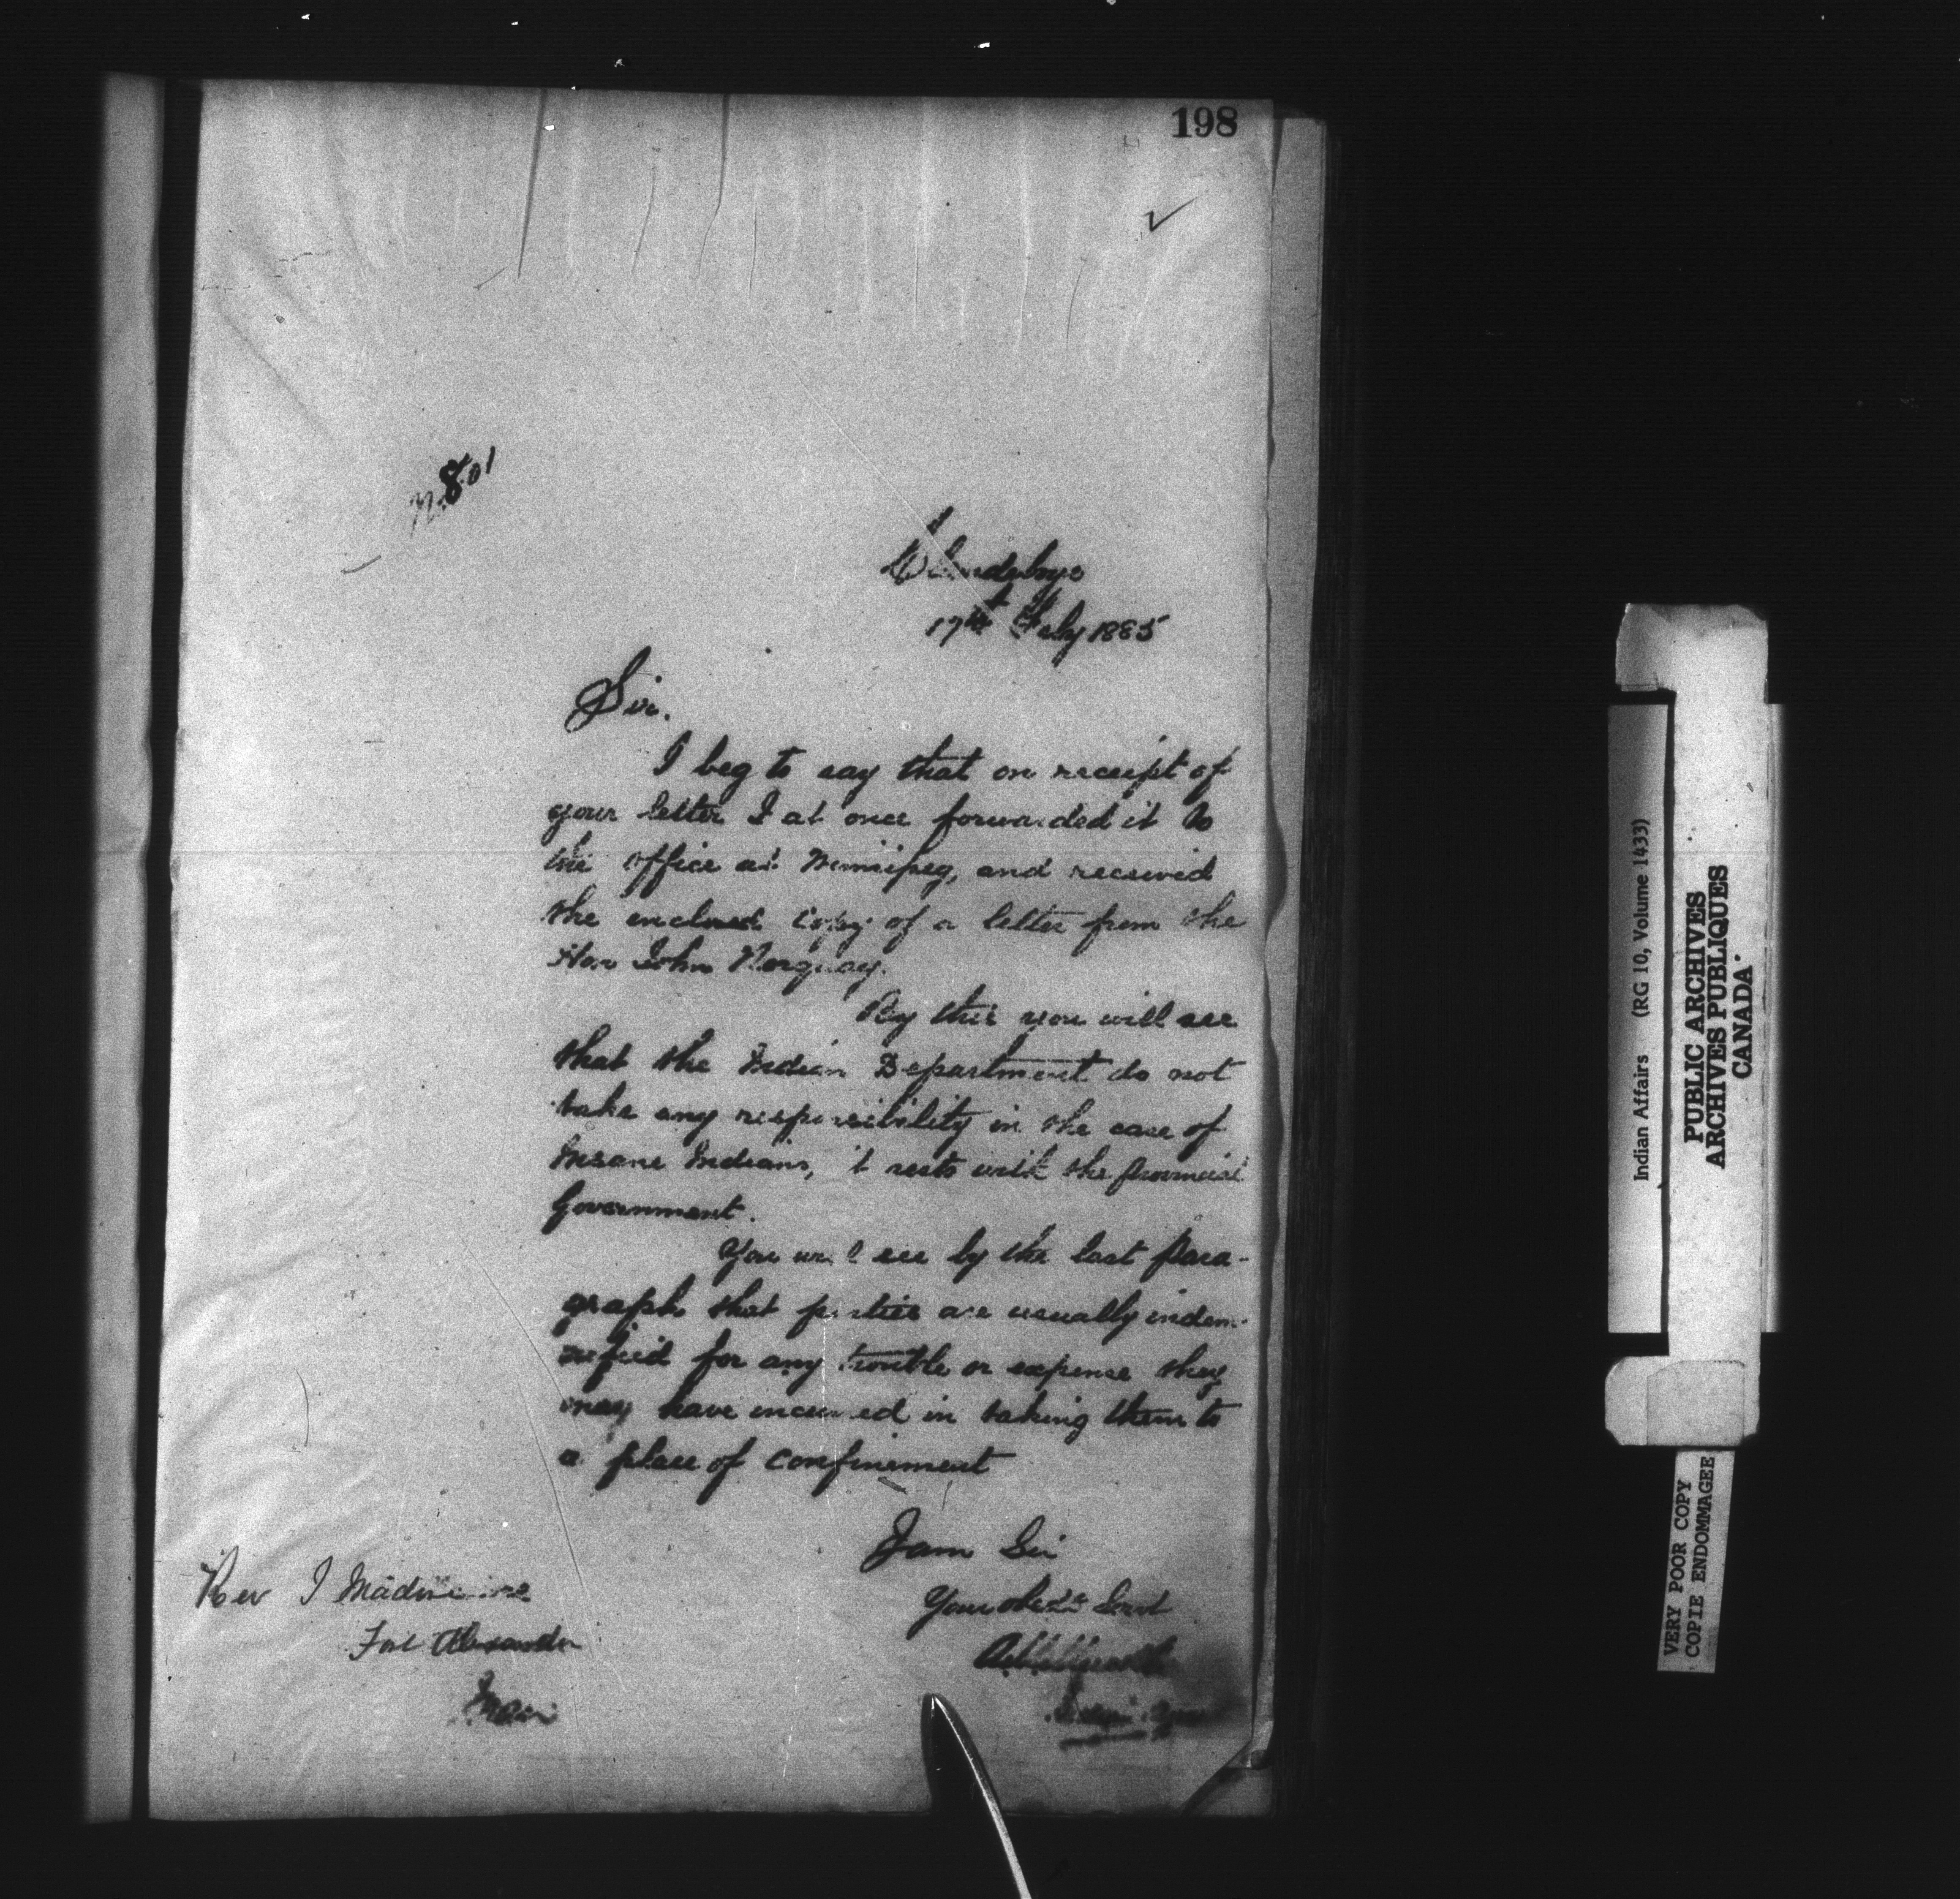 198
Clandeboye
17th Feby 1885
Sir.
I beg to say that on receipt of
your letter I at once forwarded it to
the office at Winnipeg, and received
the enclosed copy of a letter from the
Hon John Norquay.
By this you will see
that the Indian Department do not
take any responsibility in the case of
Insane Indians, it rests with the Provincial
Government.
You will see by the last Para-
graph that parties are usually indem-
nified for any trouble or expense they
may have incurred in taking them to
a place of confinement
I am Sir
Your obedt Servt
Indian Agent
Rev J
Fort Alexander
Man
Indian Affairs (RG 10, Volume 1433)
PUBLIC ARCHIVES
ARCHIVES PUBLIQUES
CANADA
VERY POOR COPY
COPIE ENDOMMAGEE